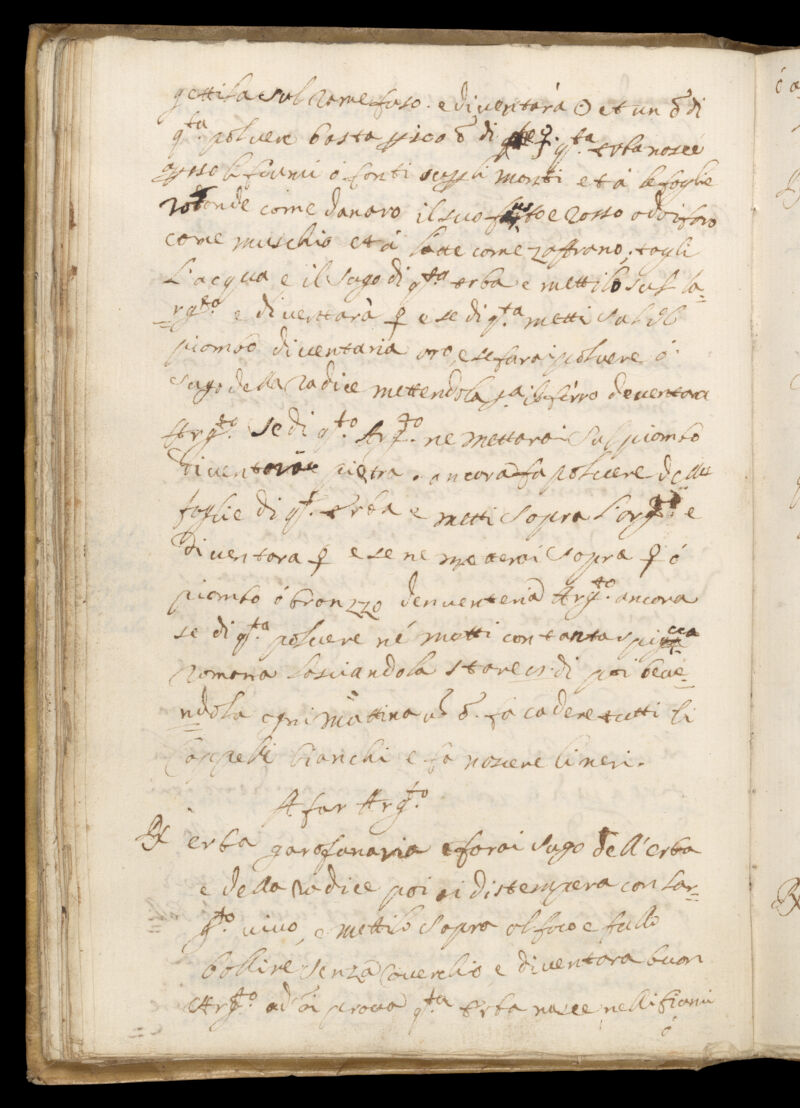 gettila sul rame fuso. e diventarà ☉ et un δ di
q.ta poluere basta δ di q.ta erba nasce
li fiumi o fonti monti et à le foglie
rotonde come danaro il suo e rosso odorifaro
come muschio et à latte come zaffrano, togli
L'acqua e il sugo di q.ta erba e mettilo sul la=
=rg.to e diventtarà ♀ e se di q.ta metti sul
piombo diventaria oro, e se farai poluere ó
sugo della radice mettendola il ferro deventara
Arg.to. se di q.to Arg.to. ne mettarai sul piombo
diventarae pietra. ancora fa poluere delle
foglie di q.ta erba e metti sopra l'arg.to e
diventara ♀ e se ne metterai sopra ♀ ó
piombo ó bronzzo denventeria Arg.to. ancora
se di q.ta poluere né metti con tanta
romana lasciandola stare di poi beue=
=ndola ogni mattina δ. fà cadere tutti li
cappelli bianchi e fa nascere li neri.
A far Arg.to
℞ erba garofanaria e farai sugo dell'erba
e della radice poi distempera con lar=
g.to uiuo, e mettilo sopra al foco e fallo
bollire senza couerchio e diventara buon
Arg.to ad oi proua q.ta erba nasce nelli fiumi
ó